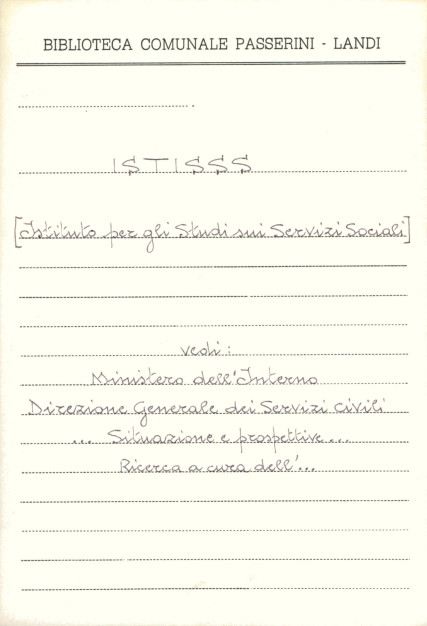 BIBLIOTECA COMUNALE PASSERINI - LANDI
ISTISSS
[Istituto per gli Studi sui Servizi Sociali]
vedi:
Ministero dell'Interno
Direzione Generale dei Servizi Civili
... Situazione e prospettive ...
Ricerca a cura dell'...